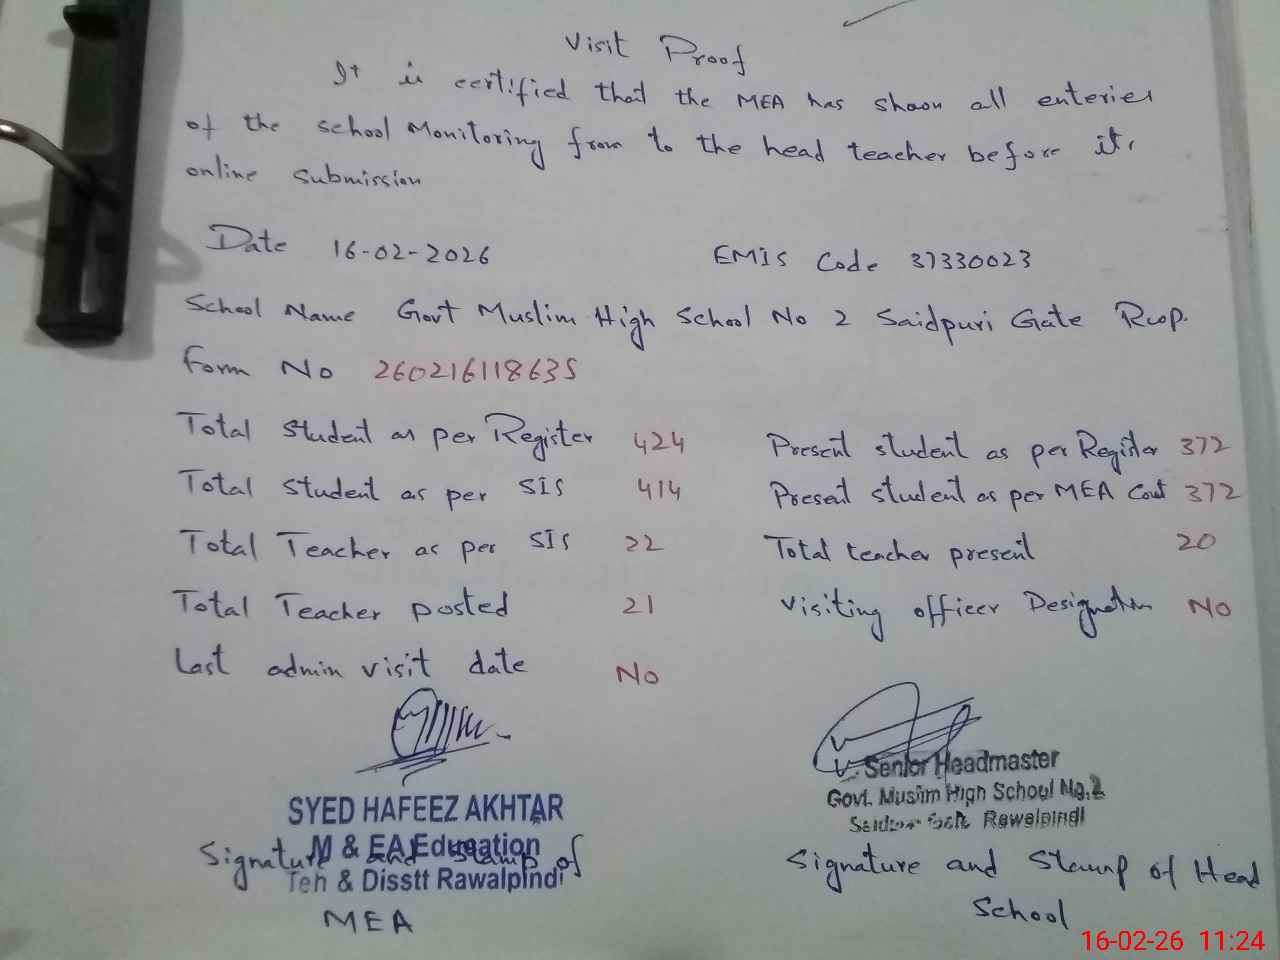 Visit Proof
It is certified that the MEA has shown all enteries
of the school Monitoring from to the head teacher before its
online submission
Date 16-02-2026 EMIS Code 37330023
School Name Govt Muslim High School No 2 Saidpuri Gate Rwp.
Form No 260216118635
Total Student as per Register 424 Present student as per Register 372
Total Student as per SIS 414 Present student as per MEA Cout 372
Total Teacher as per SIS 22 Total teacher present 20
Total Teacher posted 21 Visiting officer Designation No
Last admin visit date No
SYED HAFEEZ AKHTAR
M & EA Education
Teh & Disstt Rawalpindi
Signature and Stamp of
MEA
Senior Headmaster
Govt. Muslim High School No.2
Rawalpindi
Signature and Stamp of Head
School
16-02-26 11:24